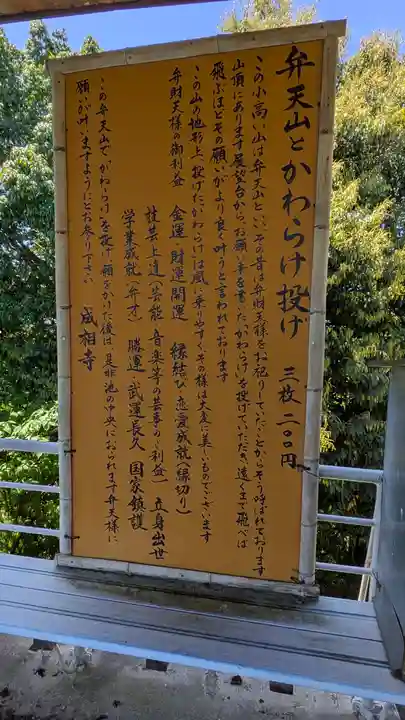 弁天山とかわらけ投げ 三枚 二〇〇円
この小高い山は弁天山といい、その昔は弁財天様をお祀りしていたことからそう呼ばれております
山頂にあります展望台から、お願い事を書いたかわらけを投げていただき、遠くまで飛べば
飛ぶほどその願いがより良く叶うと言われております
この山の地形上、投げたかわらけは風に乗りやすく、その様は大変に美しいものでございます
弁財天様の御利益 金運・財運開運 縁結び・恋愛成就(縁切り)
技芸上達(芸能・音楽等の芸事のご利益) 立身出世
学業成就(弁才) 勝運・武運長久 国家鎮護
この弁天山で、かわらけを投げ、願をかけた後は、是非池の中央におられます弁天様に
願いが叶いますようにとお参り下さい 成相寺